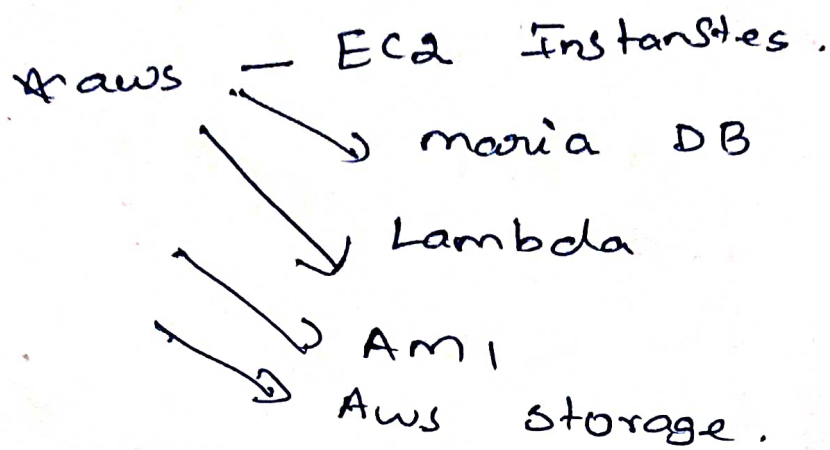 * aws — EC2 Instanstes.
maria DB
Lambda
AMI
Aws storage.